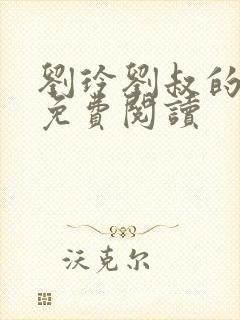 劉玲劉叔的
免費閱讀
沃克尔